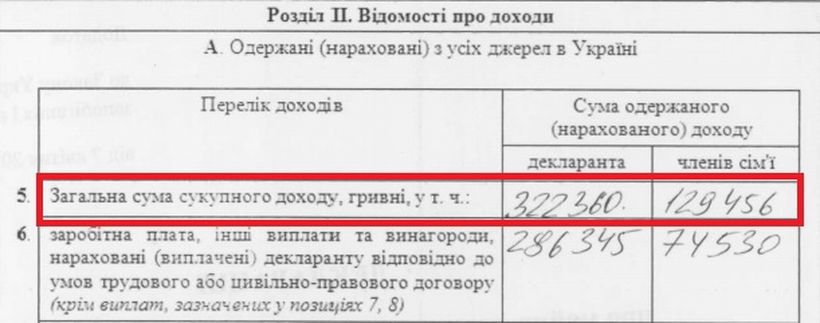 Розділ II. Відомості про доходи
А. Одержані (нараховані) з усіх джерел в Україні
Перелік доходів
Сума одержаного
(нарахованого) доходу
декларанта членів сім'ї
5. Загальна сума сукупного доходу, гривні, у т. ч.: 322360. 129456
6. заробітна плата, інші виплати та винагороди, 286345 74530
нараховані (виплачені) декларанту відповідно до
умов трудового або цивільно-правового договору
(крім виплат, зазначених у позиціях 7, 8)